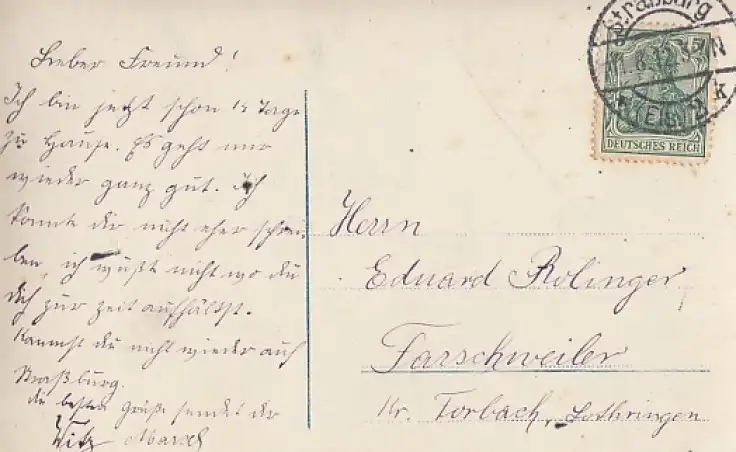 Lieber Freund!
Ich bin jetzt schon 14 Tage
zu Hause. Es geht mir
wieder ganz gut. Ich
konnte dir nicht eher schrei-
ben, ich wußte nicht wo du
dich zur zeit aufhältst.
Kannst du nicht wieder auf
Straßburg.
die besten Grüße sendet dir
Marcel
Straßburg
8.12.
N
(ELS.) 2
k
DEUTSCHES REICH
Herrn
Eduard Rolinger
Farschweiler
Kr. Forbach, Lothringen